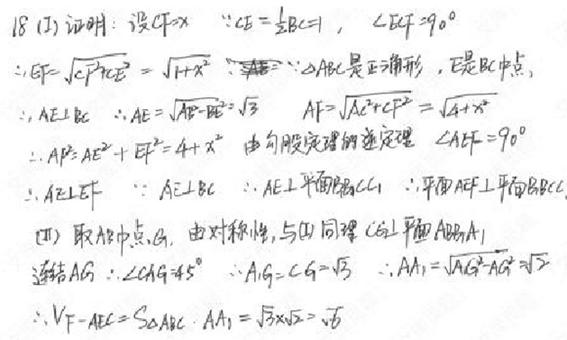 18 (I) 证明: 设CF=x ∵CE=½BC=1, ∠ECF=90°
∴EF=√CF²+CE² = √1+x² ∵△ABC是正三角形, E是BC中点,
∴AE⊥BC ∴AE=√AB²-BE²=√3 AF=√AC²+CF² = √4+x²
∴AF²=AE²+EF²=4+x² 由勾股定理的逆定理 ∠AEF=90°
∴AE⊥EF ∵AE⊥BC ∴AE⊥平面B₁BCC₁ ∴平面AEF⊥平面B₁BCC₁
(II) 取AB中点G, 由对称性,与(I)同理 CG⊥平面ABB₁A₁
连结AG ∴∠CA₁G=45° ∴A₁G=CG=√3 ∴AA₁=√A₁G²-AG²=√2
∴V F-AEC=S△ABC·AA₁=√3×√2=√6